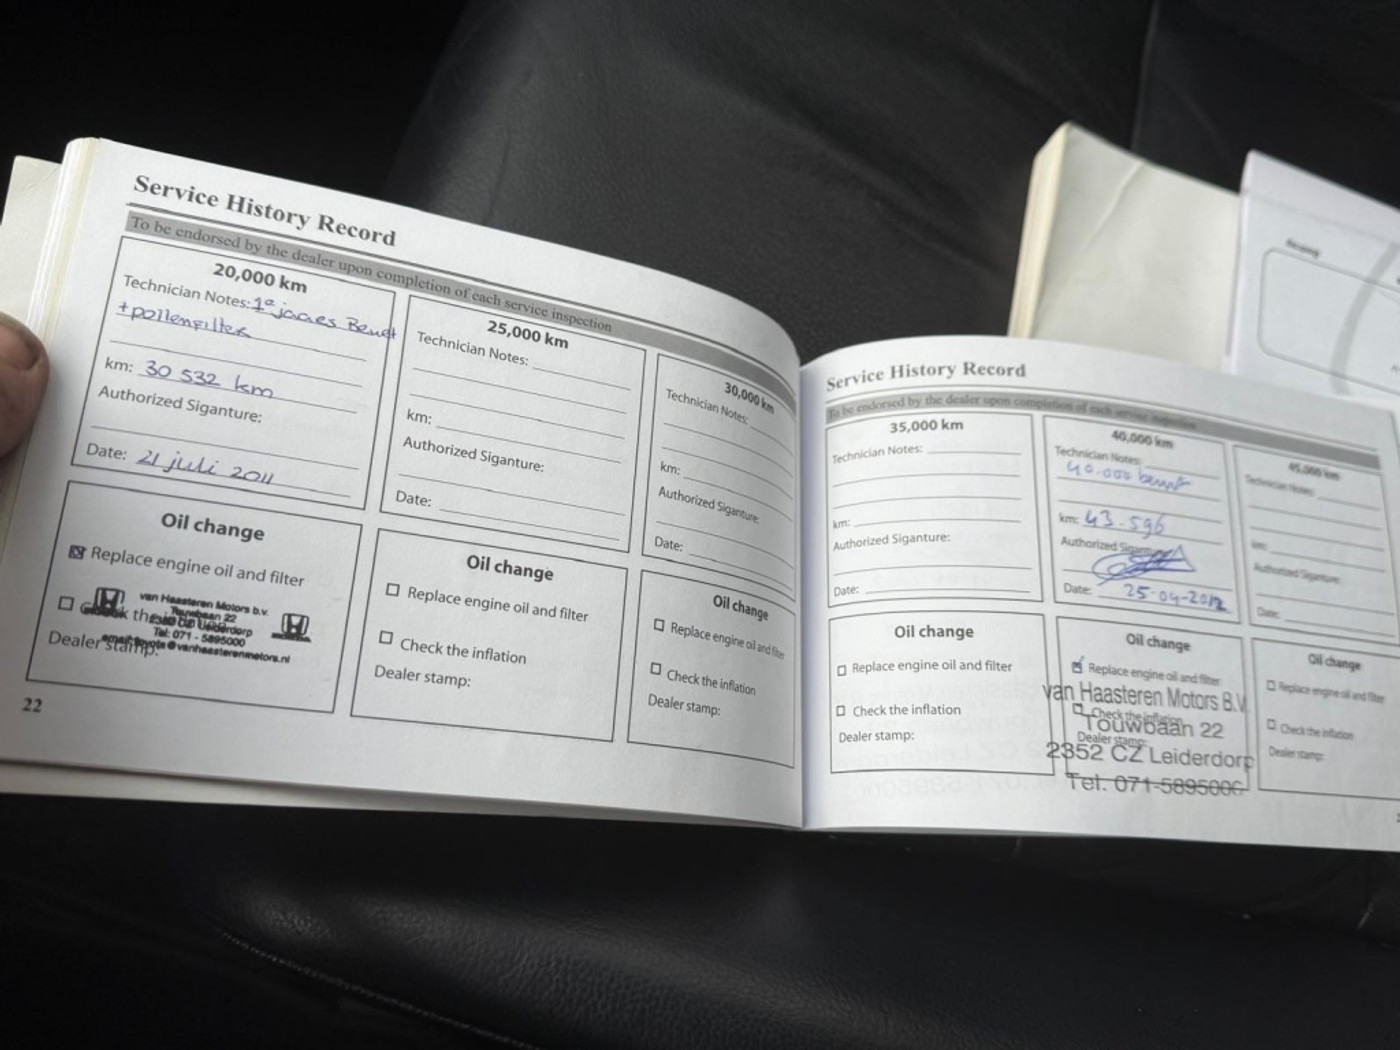 Service History Record
To be endorsed by the dealer upon completion of each service inspection
20,000 km
Technician Notes: 1e jaares Beurt
+pollenfilter
km: 30 532 km
Authorized Siganture:
Date: 21 juli 2011
Oil change
Replace engine oil and filter
van Haasteren Motors b.v.
Touwbaan 22
Leiderdorp
Tel: 071 - 5895000
Dealer stamp:
22
25,000 km
Technician Notes:
km:
Authorized Siganture:
Date:
Oil change
Replace engine oil and filter
Check the inflation
Dealer stamp:
30,000 km
Technician Notes:
km:
Authorized Siganture:
Date:
Oil change
Replace engine oil and filter
Check the inflation
Dealer stamp:
Service History Record
To be endorsed by the dealer upon completion of each service inspection
35,000 km
Technician Notes:
km:
Authorized Siganture:
Date:
Oil change
Replace engine oil and filter
Check the inflation
Dealer stamp:
40,000 km
Technician Notes:
40.000 beurt
km: 43.596
Authorized Siganture:
Date: 25-04-2012
Oil change
Replace engine oil and filter
van Haasteren Motors B.V.
Check the inflation
Touwbaan 22
Dealer stamp:
2352 CZ Leiderdorp
Tel. 071-5895000
45,000 km
Technician Notes:
km:
Authorized Siganture:
Date:
Oil change
Replace engine oil and filter
Check the inflation
Dealer stamp: